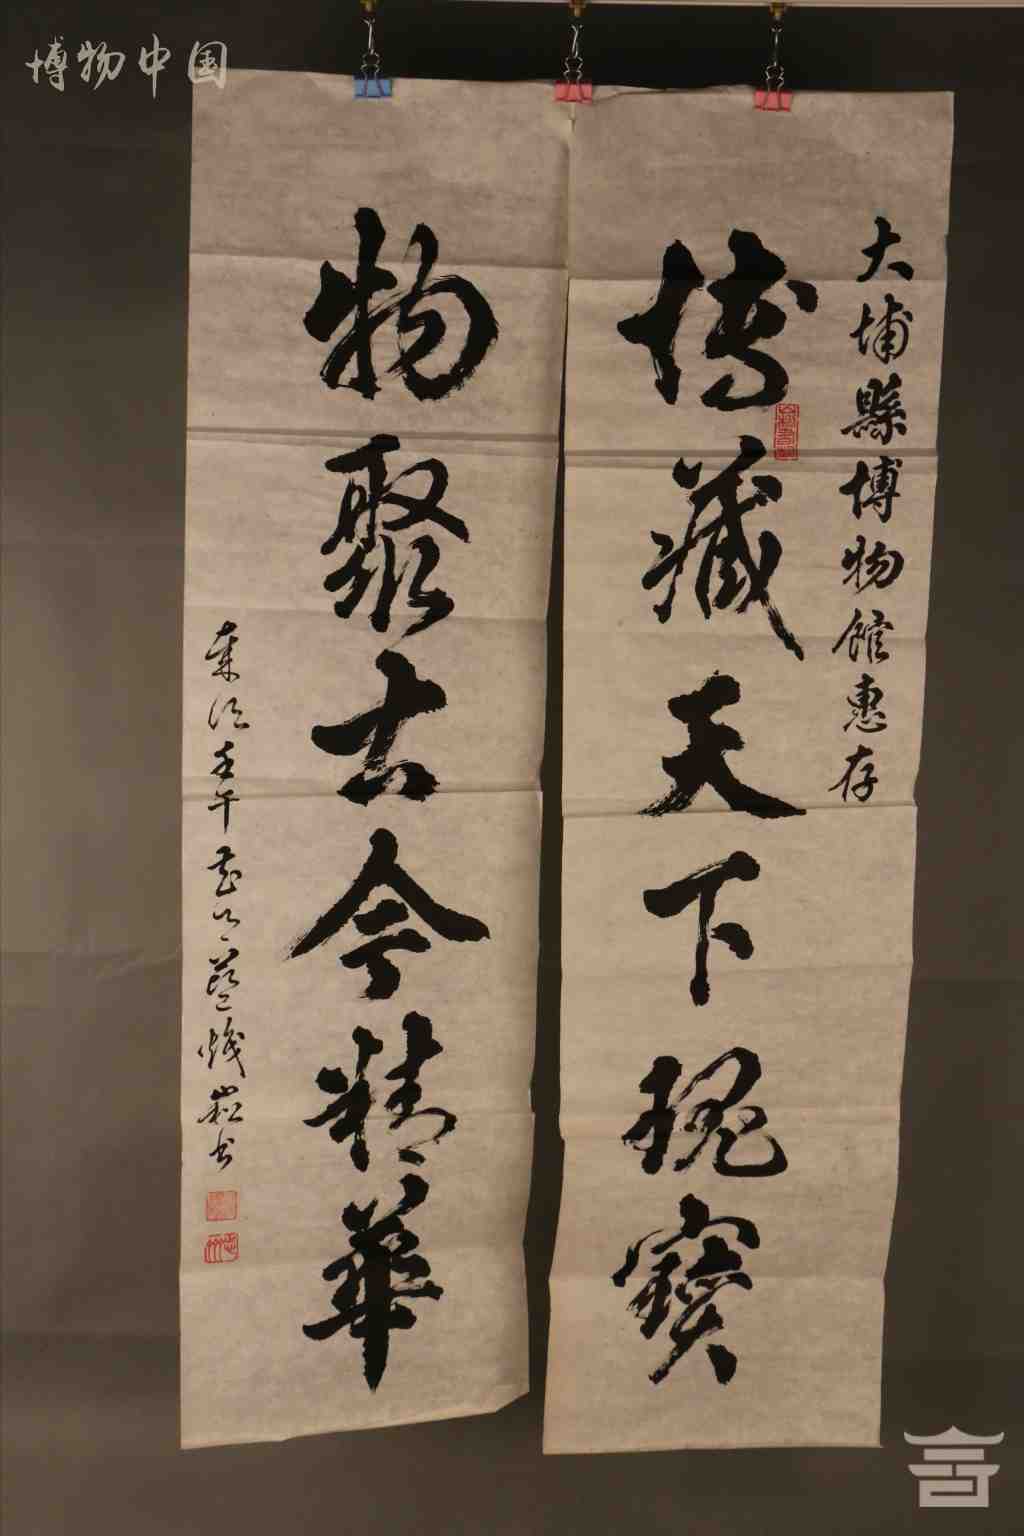 博物中国
大埔縣博物館惠存
博藏天下瑰寶
物聚古今精華
歲次壬午
崧书